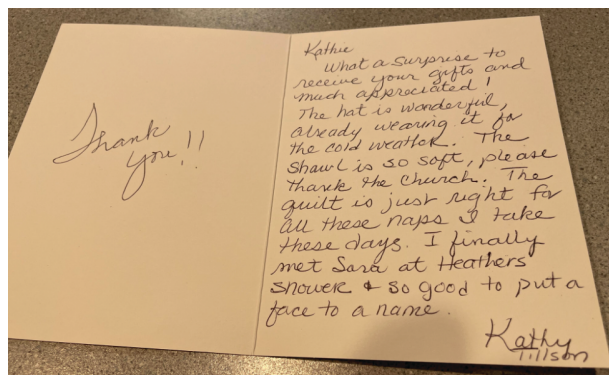 Thank
you!!
Kathie
What a surprise to
receive your gifts and
much appreciated!
The hat is wonderful,
already wearing it for
the cold weather. The
Shawl is so soft, please
thank the church. The
quilt is just right for
all these naps I take
these days. I finally
met Sara at Heathers
shower & so good to put a
face to a name.
Kathy
Tillson